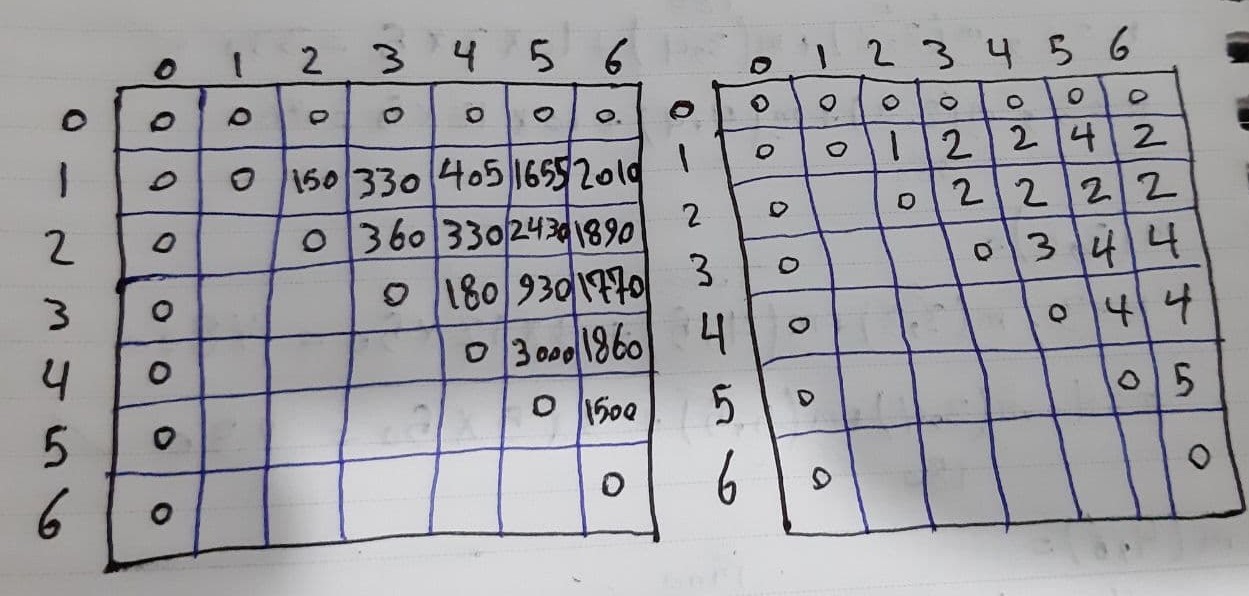 0 1 2 3 4 5 6
0 0 0 0 0 0 0 0
1 0 0 150 330 405 1655 2010
2 0 0 360 330 2430 1890
3 0 0 180 930 1770
4 0 0 3000 1860
5 0 0 1500
6 0 0
0 1 2 3 4 5 6
0 0 0 0 0 0 0 0
1 0 0 1 2 2 4 2
2 0 0 2 2 2 2
3 0 0 3 4 4
4 0 0 4 4
5 0 0 5
6 0 0